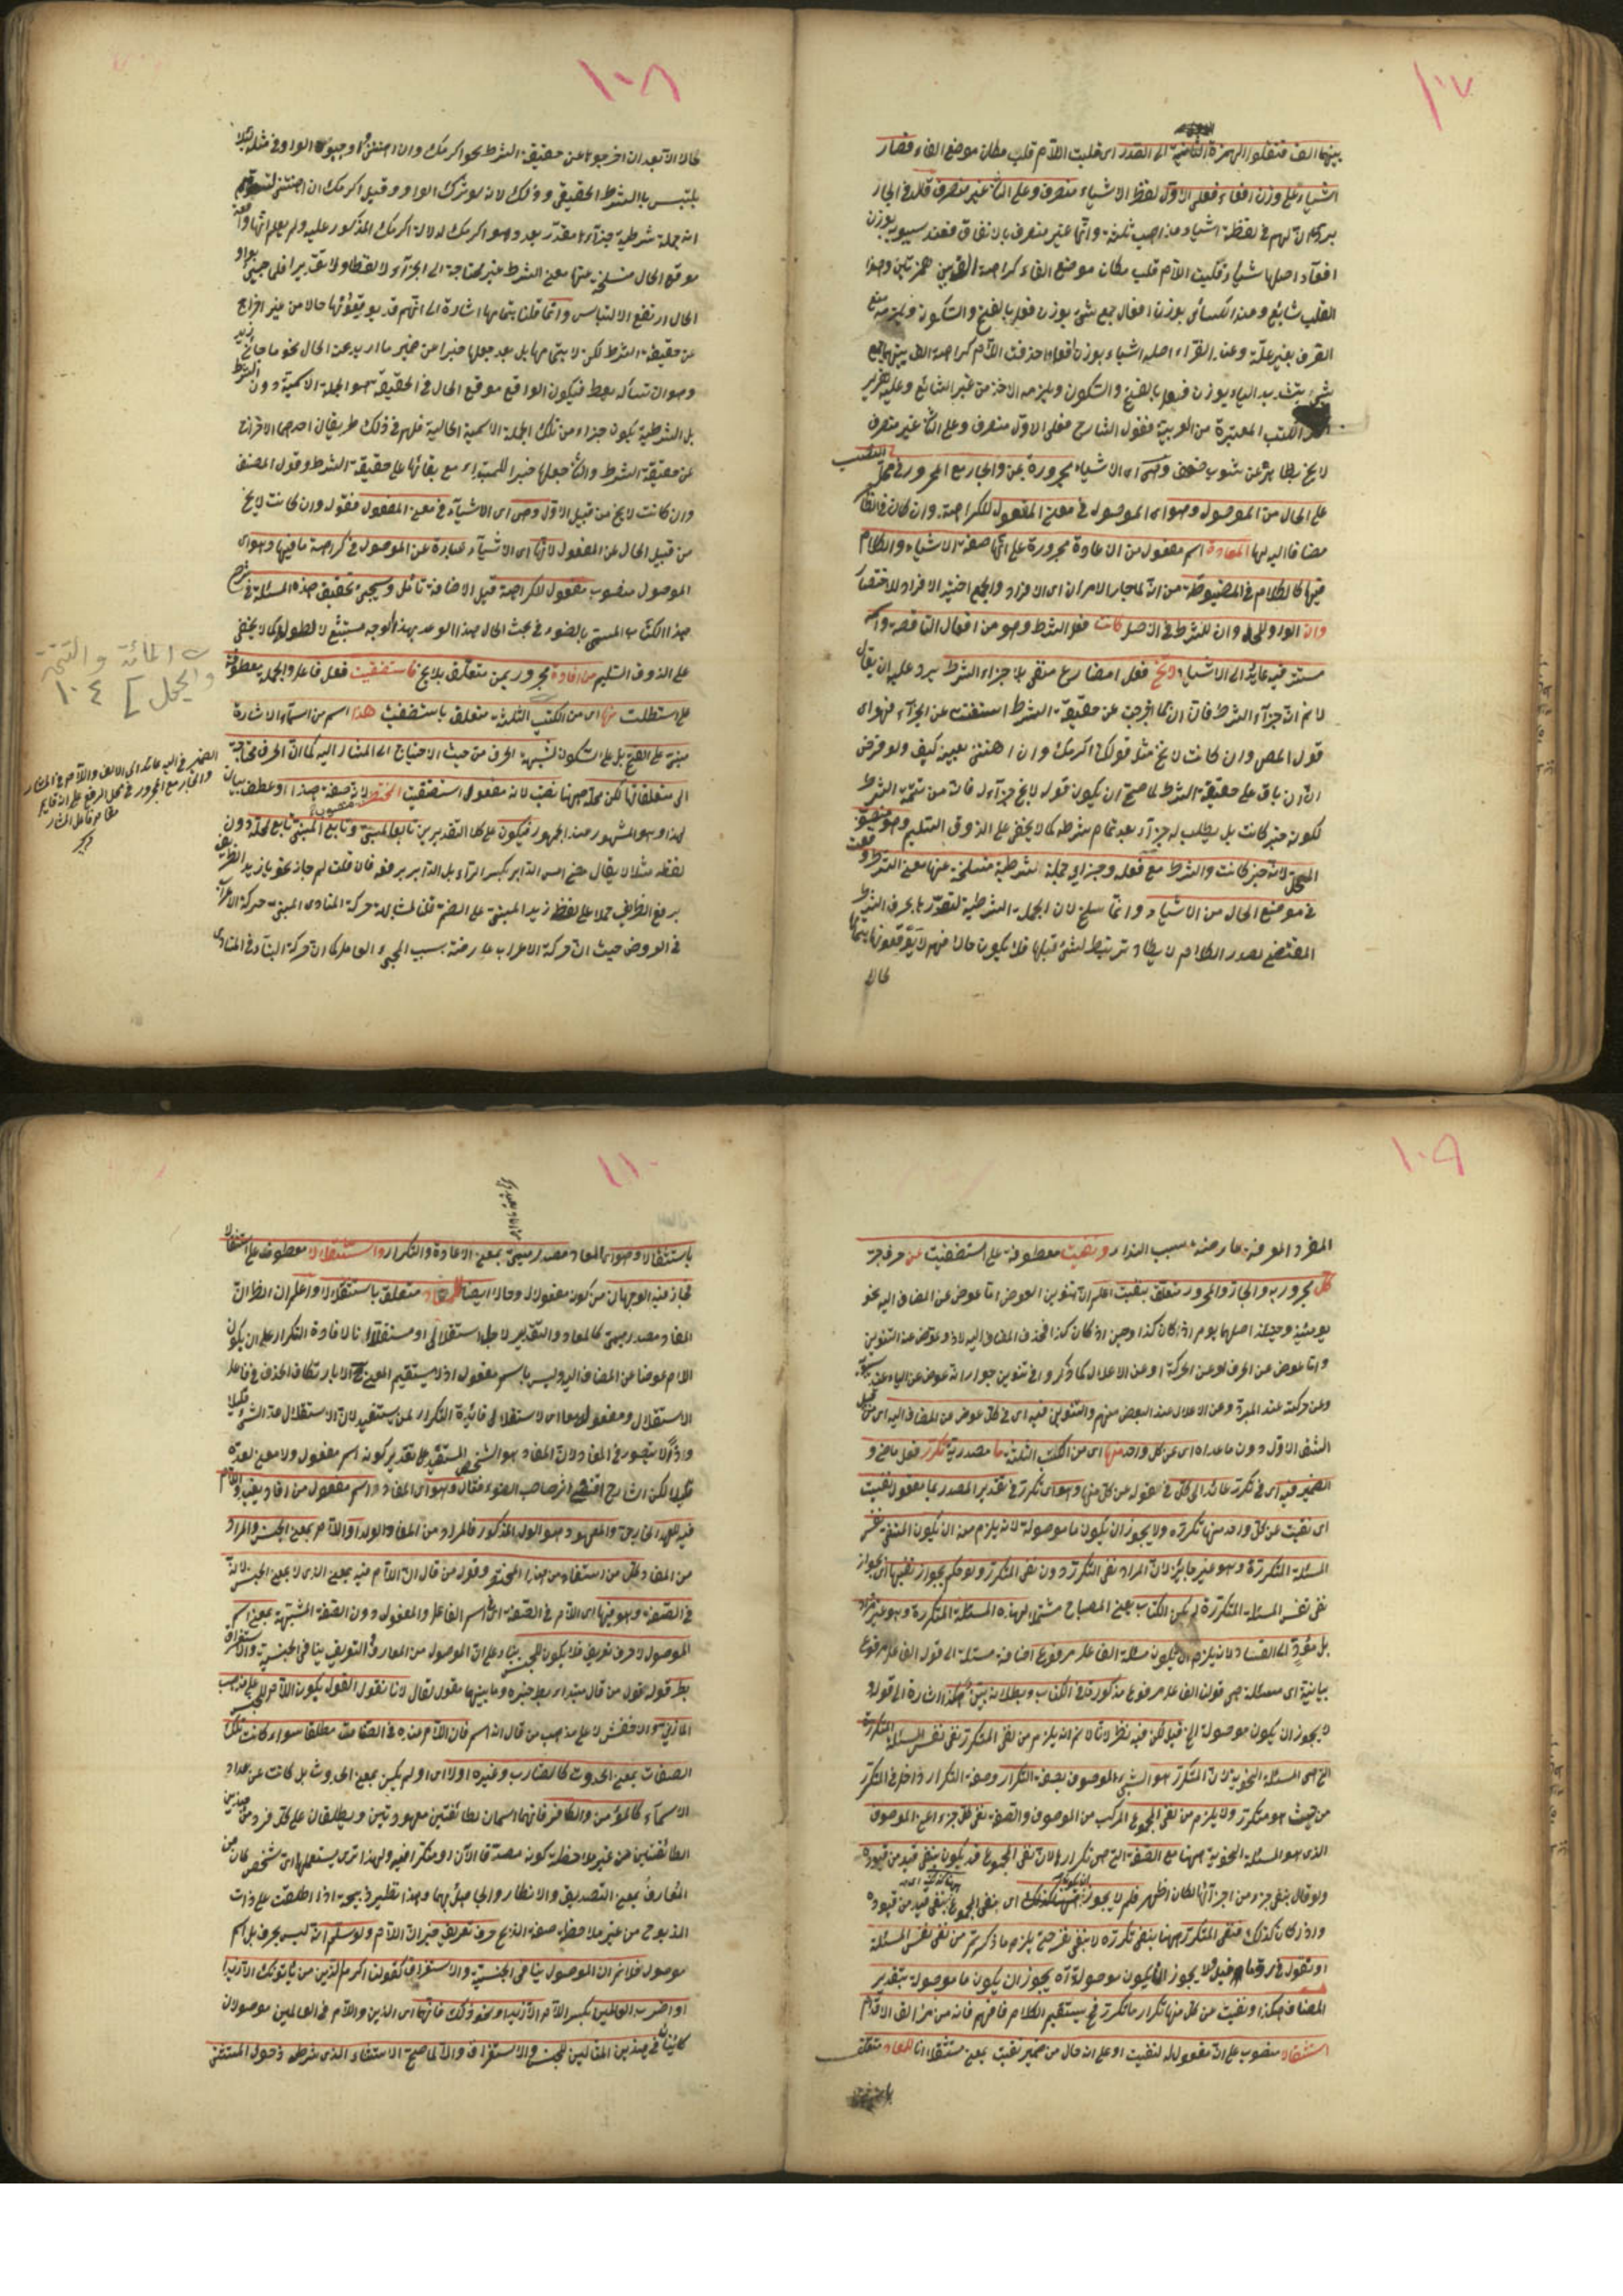 ١٠٧
بينهما الف فنقلوا الهمزة الثانية الى الصدر اى قلبت اللام قلب مكان موضع الفاء فصار
اشياء على وزن لفعاء فعلى الاول لفظ الاشياء منصرف وعلى الثانى غير منصرف قال فى
افعاء اصلها شياء فقلبت اللام قلب مكان موضع الفاء كراهة همزتين وهذا
القلب شائع وعند الكسائى بوزن افعال جمع شئ بوزن فعل بالفتح والسكون ويلزمه منع
الصرف بغير علة وعند الفراء اصله اشياء بوزن افعلاء حذفت اللام كراهة الف بينهما جمع
شئ بتشديد الياء بوزن فيعل بالفتح والسكون ويلزمه الاخذ من غير الشائع وعليه
الكتب المعتبرة من العربية فقول الشارح فعلى الاول منصرف وعلى الثانى غير منصرف
لا يخ بظاهره عن شوب ضعف وهى اى الاشياء مجرورة بمن والجار مع المجرور فى محل النصب
على الحال من الموصول وهو اى الموصول فى معنى المفعول للكراهة وان كان فى اللفظ
مضافا اليه لها المعادة اسم مفعول من الاعادة مجرورة على انها صفة الاشياء والكلام
فيها كالكلام فى المضبوطة من انه لما جاز الامران اى الافراد والجمع اختير الافراد للاختصار
وان الواو للحال وان للشرط فى الاصل كانت فعل الشرط وهو من افعال الناقصة واسمه
مستتر فيه عائد الى الاشياء لا يخ فعل مضارع منفى بلا جزاء الشرط يرد عليه ان يقال
لا نم انه جزاء الشرط فان ان لما اخرجت عن حقيقة الشرط استغنت عن الجزاء فهو اى
قول المص وان كانت لا يخ مثل قولك اكرمك وان اهنتنى بعينه كيف ولو فرض
ان ان باق على حقيقة الشرط لما صح ان يكون قوله لا يخ جزاء له فانه من تتمة الشرط
لكونه خبر كانت بل يطلب له جزاء بعد تمام شرطه كما لا يخفى على الذوق السليم
لانه خبر كانت والشرط مع فعله وجزائه جملة شرطية منسلخة عنها معنى الشرط
فى موضع الحال من الاشياء وانما سلخ لان الجملة الشرطية لتصدرها بحرف الشرط
المقتضى لصدر الكلام لا يكاد ترتبط بشئ قبلها فلا يكون حالا فهم لا يوقعونها بتمامها
حالا
١٠٨
حالا الا بعد ان اخرجوها عن حقيقة الشرط نحو اكرمك وان اهنتنى واوجبوا الواو فى مثله لئلا
يلتبس بالشرط الحقيقى وذلك لانه لو ترك الواو وقيل اكرمك ان اهنتنى لتوهم
انه جملة شرطية جزاؤها مقدر بعد وهو اكرمك لدلالة اكرمك المذكور عليه ولم يعلم انها
موقع الحال منسلخ عنها معنى الشرط غير محتاجة الى الجزاء لا لفظا ولا تقديرا فلما جيئ بواو
الحال ارتفع الالتباس وانما قلنا بتمامها اشارة الى انهم قد يوقعونها حالا من غير اخراج
عن حقيقة الشرط لكن لا بتمامها بل بعد جعلها خبرا من ضمير ما اريد عن الحال نحو ما جاء زيد
وهو ان تسأله يعط فيكون الواقع موقع الحال فى الحقيقة هو الجملة الاسمية دون الشرط
بل الشرطية يكون جزاء من تلك الجملة الاسمية الحالية فلهم فى ذلك طريقان احدهما الاخراج
عن حقيقة الشرط والثانى جعلها خبرا للمبتداء مع بقائها على حقيقة الشرط وقول المصنف
وان كانت لا يخ من قبيل الاول وهى اى الاشياء فى معنى المفعول فقوله وان كانت لا يخ
من قبيل الحال عن المفعول لانها اى الاشياء عبارة عن الموصول فى كراهة ما فيها وهو اى
الموصول منصوب مفعول للكراهة قبل الاضافة تأمل وسيجئ تحقيق هذه المسئلة فى شرح
هذا الكتاب المسمى بالضوء فى بحث الحال هذا الوعد بهذا الوجه مستبشع لا لطوله كما لا يخفى
على الذوق السليم من افادة مجرور بمن متعلق بلا يخ فاستصفيت فعل فاعل والجملة معطوفة
على استطلت منها اى من الكتب الثلثة متعلق باستصفيت هذا اسم من اسماء الاشارة
مبنى على الفتح بل على السكون لشبهه الحرف من حيث الاحتياج الى المشار اليه كما ان الحرف محتاجة
الى متعلقاتها لكن محله ههنا نصب لانه مفعول استصفيت المختصر لانه صفة هذا او عطف بيان
لهذا وهو المشهور عند الجمهور فيكون على كلا التقديرين تابعا للمبنى وتابع المبنى تابع لمحله دون
لفظه مثلا لا يقال مضى امس الدابر بكسر الراء بل الدابر برفعه فان قلت لم جاز نحو يا زيد الظريف
برفع الظريف حملا على لفظ زيد المبنى على الضم قلنا لمشابهة حركة المنادى المبنى حركة الاعراب
فى العروض حيث ان حركة الاعراب عارضة بسبب المجئ العامل كما ان حركة البناء فى المنادى
المائة والتتمة
والجمل] ١٠٤
الضمير فى اليه عائد الى الالف واللام فى المشار
والجار مع المجرور فى محل الرفع على انه قايم
مقام فاعل المشار
١٠٩
المفرد المعرفة عارضة بسبب النداء ونفيت معطوفة على استصفيت عن حرف جر
كل مجرور به والجار والمجرور متعلق بنفيت اعلم ان تنوين العوض اما عوض عن المضاف اليه نحو
يومئذ وحينئذ اصلها يوم اذ كان كذا وحين اذ كان كذا فحذف المضاف اليه لاذ وعوض عنه التنوين
واما عوض عن الحرف او عن الحركة او عن الاعلال كما ذكروا فى تنوين جوار انه عوض عن الياء عند سيبويه
وعن حركته عند المبرد وعن الاعلال عند البعض منهم والتنوين فيه اى فى كل عوض عن المضاف اليه اى من
الشق الاول دون ما عداه اى عن كل واحد منها اى من الكتب الثلثة ما مصدرية تكرر فعل ماض و
الضمير فيه اى فى تكرر عائد الى كل فى قوله عن كل منها وهو اى تكرر فى تقدير المصدر بما مفعول نفيت
اى نفيت عن كل واحد منها تكرره ولا يجوز ان يكون ما موصولة لانه يلزم منه ان يكون المنفى نفس
المسئلة المتكررة وهو غير جايز لان المراد نفى التكرر دون نفى المتكرر ولو حكم بجواز نفيها اى بجواز
نفى نفس المسئلة المتكررة لم يكن الكتاب يعنى المصباح مشتملا لهذه المسئلة المتكررة وهو غير مراد
بل مؤد الى الفساد لانه يلزم ان لا يكون مسئلة الفاعل مرفوع اضافة مسئلة الى قوله الفاعل مرفوع
بيانية اى مسئلة هى قولنا الفاعل مرفوع مذكورة فى الكتاب وبطلانه بين هكذا اشارة الى قوله
لا يجوز ان يكون موصولة الخ قيل لكن فيه نظر لانا لا نم انه يلزم من نفى المتكرر نفى نفس المسئلة المتكررة
التى هى المسئلة النحوية لان المتكرر هو الشئ الموصوف بصفة التكرار وصفة التكرار داخل فى التكرر
من حيث هو متكرر ولا يلزم من نفى المجموع المركب من الموصوف والصفة نفى كل جزء اعنى الموصوف
الذى هو المسئلة النحوية ههنا مع الصفة التى هى تكرارها لان نفى المجموع قد يكون بنفى قيد من قيوده
ولو قال بنفى جزء من اجزائها لكان اظهر فلم لا يجوز ههنا كذلك اى بنفى المجموع بنفى قيد من قيوده
واذ كان كذلك فنفى المتكرر ههنا بنفى تكرره لا بنفى نفسه حتى يلزم ما ذكرتم من نفى نفس المسئلة
او نقول فى رد قيل لا يجوز ان يكون موصولة انه يجوز ان يكون ما موصولة بتقدير
المضاف هكذا ونفيت عن كل منها تكرار ما تكرر فح يستقيم الكلام فافهم فانه من مزالق الاقدام
استثقالا منصوب على انه مفعول له لنفيت او على انه حال من ضمير نفيت بمعنى مستثقلا انا للمعاد متعلق
١١٠
باستثقالا وهو اى المعاد مصدر ميمى بمعنى الاعادة والتكرار واستقلالا معطوف على استثقالا
فجاز فيه الوجهان من كونه مفعولا له وحالا ايضا للمفاد متعلق باستقلالا واعلم ان الظاهر ان
المفاد مصدر ميمى كالمعاد والتقدير لاجل استقلالى او مستقلا انا لافادة التكرار على ان يكون
اللام عوضا عن المضاف اليه وليس باسم مفعول اذ لا يستقيم المعنى ح الا بارتكاب الحذف فى فاعل
الاستقلال ومفعوله معا اى لاستقلالى فائدة التكرار لمن يستفيد لان الاستقلال عد الشئ قليلا
وذا لا يتصور فى المفاد لان المفاد هو الشخص المستفيد على تقدير كونه اسم مفعول ولا معنى لعده
قليلا لكن الشارح اقتفى اثر صاحب الضوء فقال وهو اى المفاد اسم مفعول من افاد يفيد واللام
فيه للعهد الخارجى والمعهود هو الولد المذكور فالمراد من المفاد الولد او اللام بمعنى الجنس والمراد
من المفاد كل من استفاد من هذا المختصر وقول من قال ان اللام فيه بمعنى الذى لا بمعنى الجنس لانه
فى الصفة وهو فيها اى اللام فى الصفة اى اسم الفاعل والمفعول دون الصفة المشبهة بمعنى اسم
الموصول لا حرف تعريف فلا يكون للجنس بناء على ان الموصول من المعارف والتعريف ينافى الجنسية والاستغراق
بط قوله قول من قال مبتداء بط خبره وما بينهما مقول لقال لانا نقول القول بكون اللام للجنس على مذهب
المازنى هو الاخفش لا على مذهب من قال انه اسم فان اللام عنده فى الصفات مطلقا سواء كانت تلك
الصفات بمعنى الحدوث كالضارب وغيره اولا اى او لم يكن بمعنى الحدوث بل كانت عن عداد
الاسماء كالمؤمن والكافر فانهما اسمان لطائفتين معهودتين ويطلقان على كل فرد من هذين
الطائفتين من غير ملاحظة كونه مصدقا الآن او منكرا فيه ولهذا ترى يستعملها اى شخص كان من
المعارف بمعنى التصديق والانكار والجاهل بهما وهذا نظير ذبيحة اذا اطلقت على ذات
المذبوح من غير ملاحظة صفة الذبح حرف تعريف خبر ان اللام ولو سلم انه ليس بحرف بل اسم
موصول فلا نم ان الموصول ينافى الجنسية والاستغراق كقولك اكرم الذين من يأتونك الا زيدا
او اضرب العالمين بكسر اللام الا زيدا ونحو ذلك فانهما اى الذين واللام فى العالمين موصولان
كائنان فى هذين المثالين للجنس والاستغراق والا لما صح الاستثناء الذى شرطه دخول المستثنى